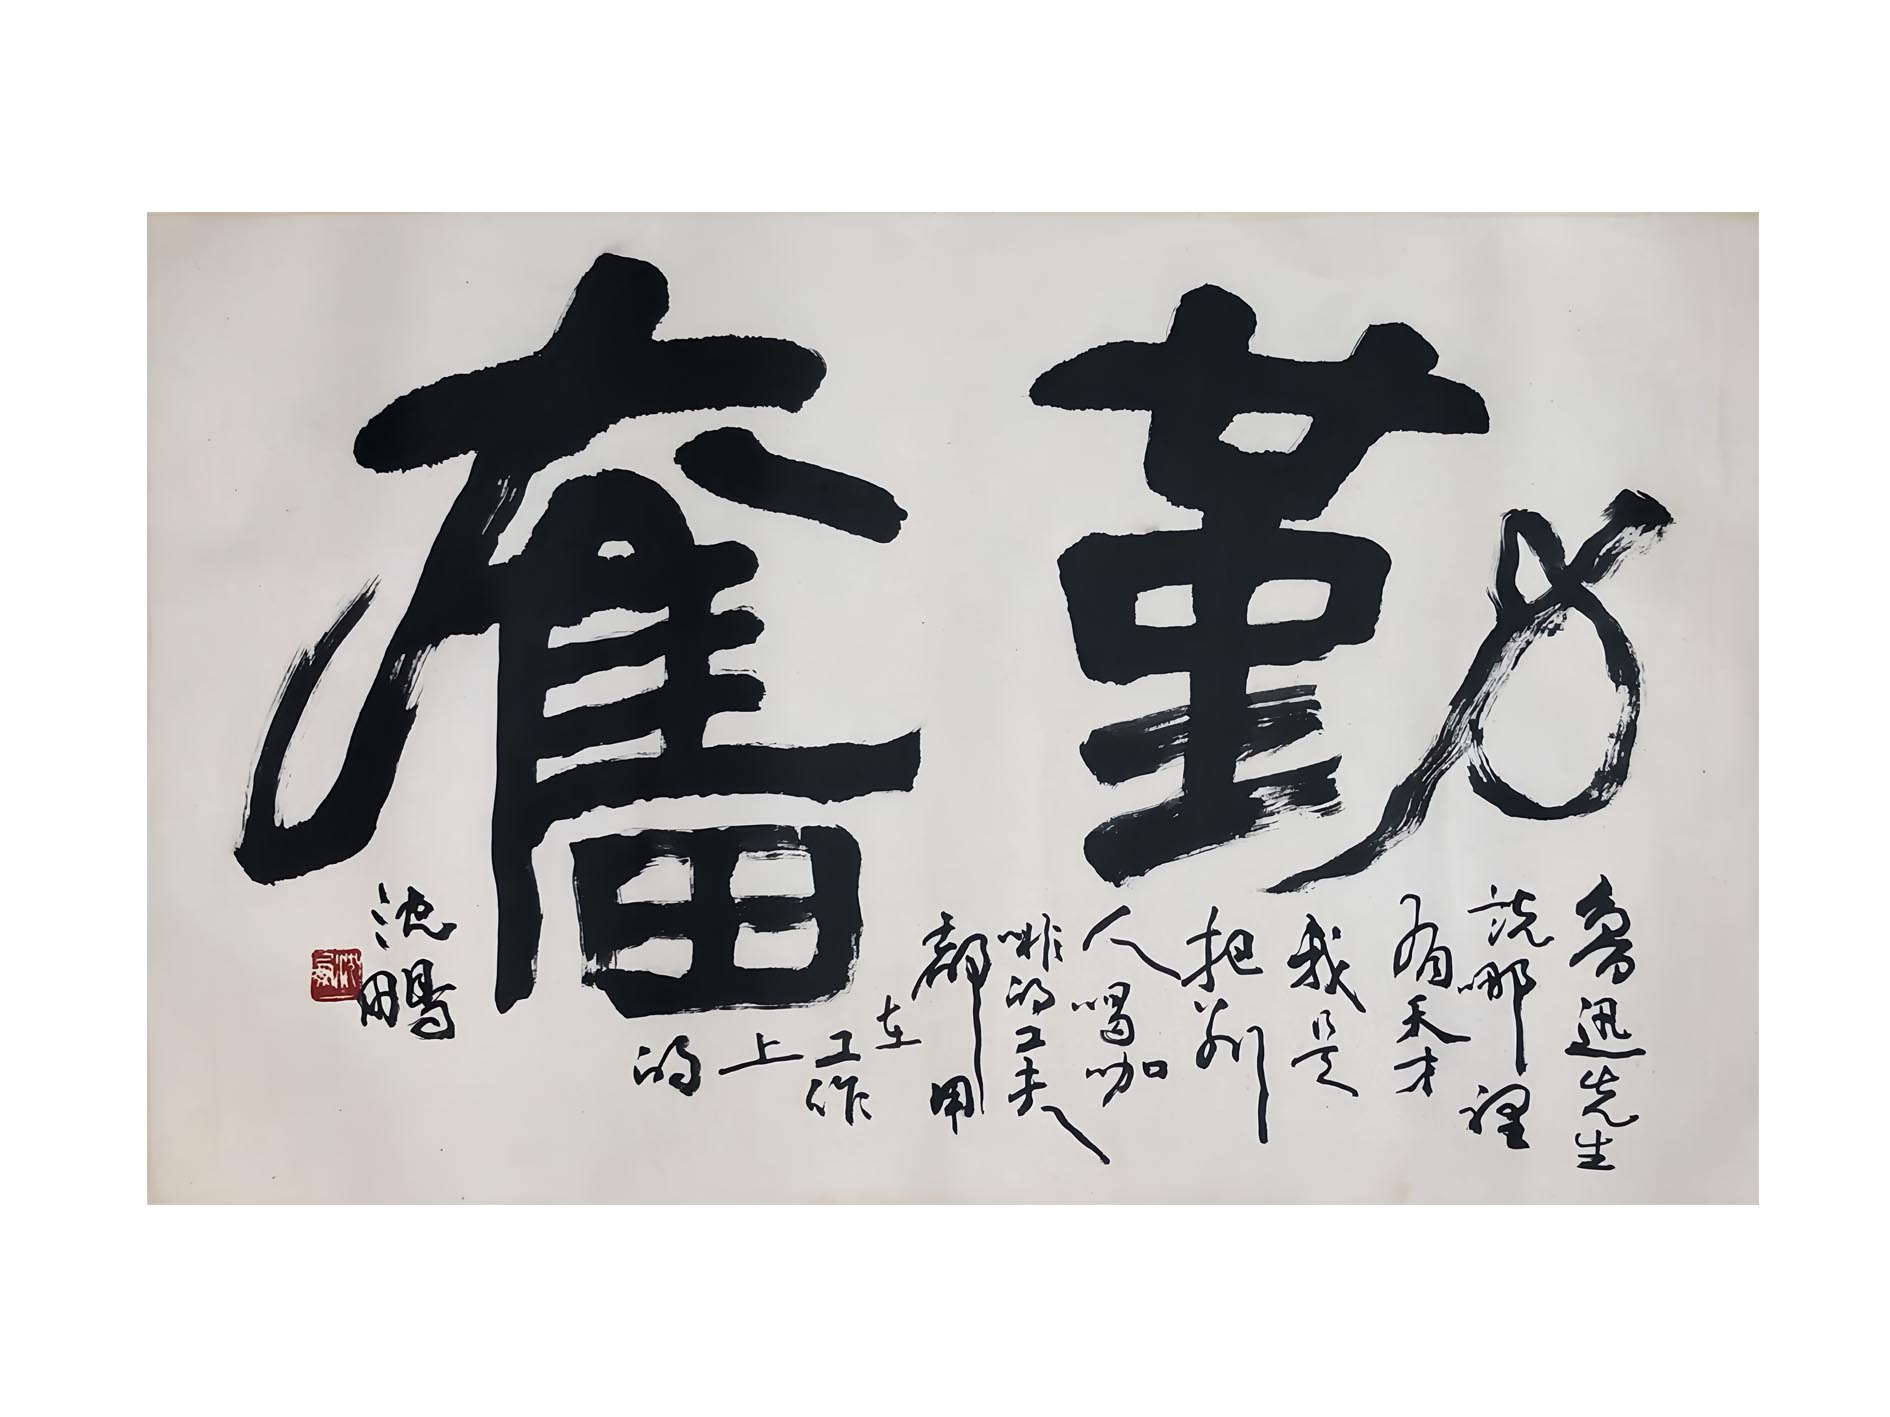 勤奮
魯迅先生
說哪裡
有天才
我是
把別
人喝咖
啡的工夫
都用
在
工作
上
的
沈鵬
沈鵬